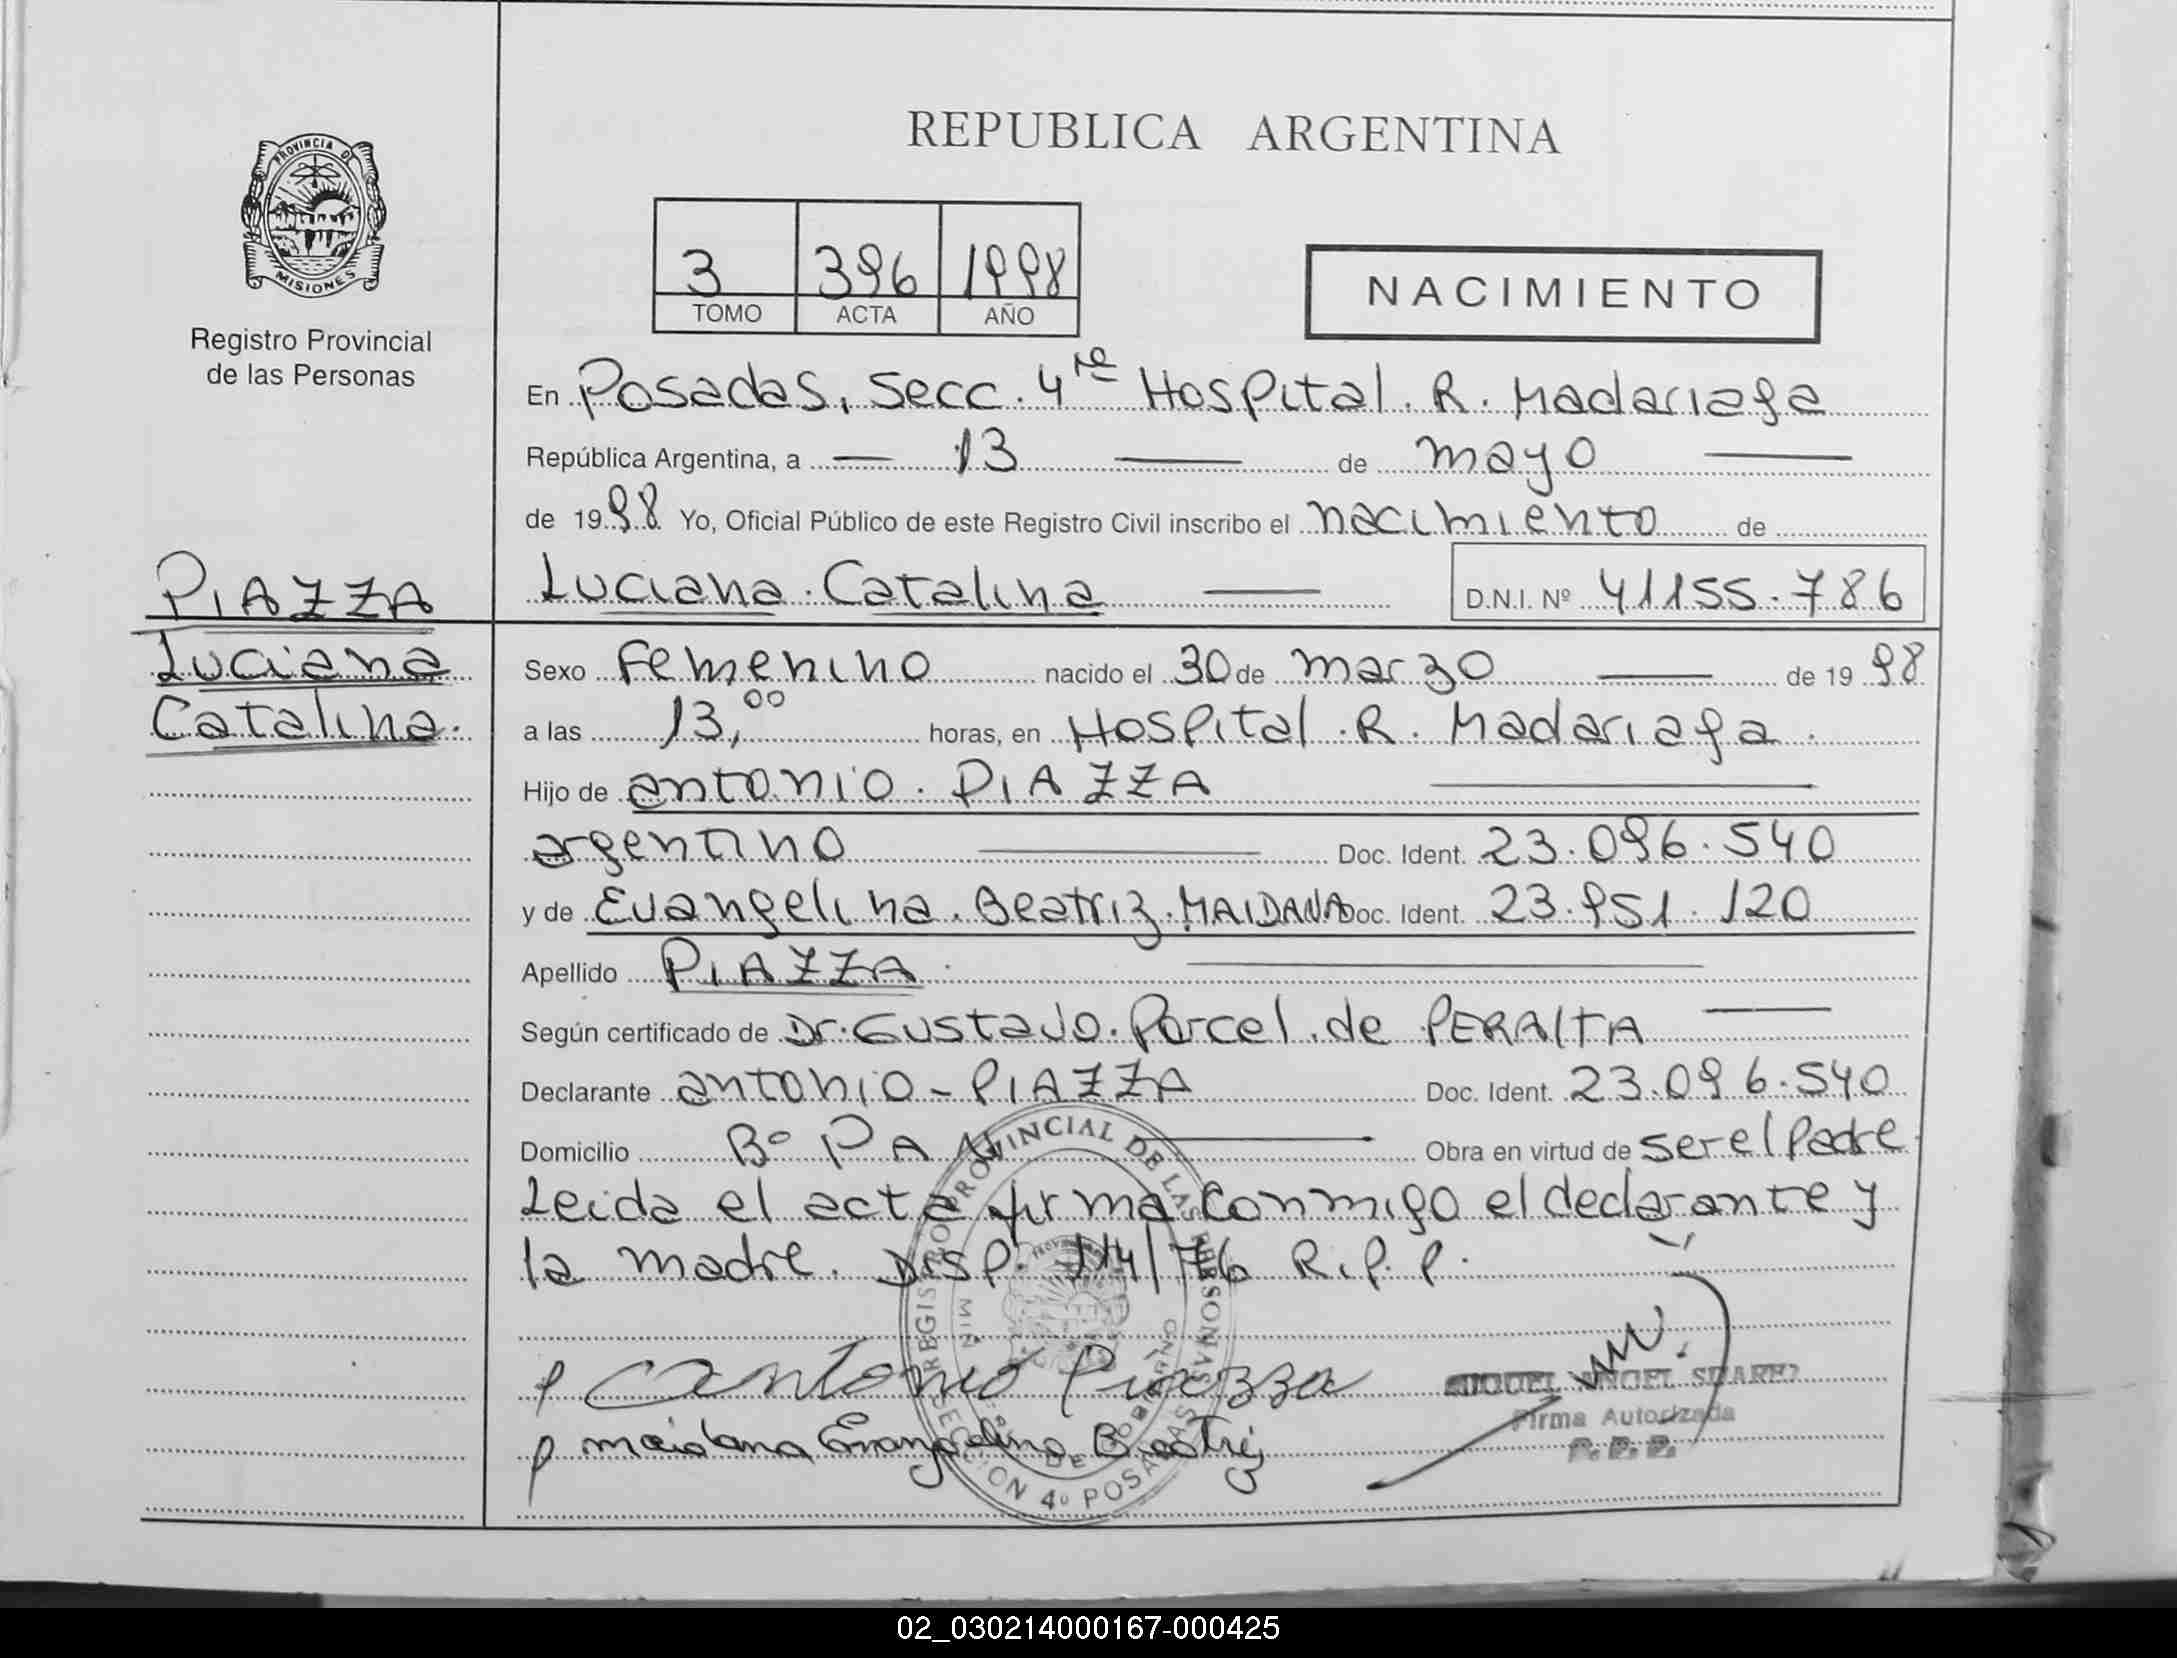 REPUBLICA ARGENTINA
PROVINCIA DE
MISIONES
Registro Provincial
de las Personas
3 396 1998
TOMO ACTA AÑO
NACIMIENTO
En Posadas, Secc. 4ta Hospital. R. Madariaga
República Argentina, a — 13 — de mayo —
de 1998 Yo, Oficial Público de este Registro Civil inscribo el nacimiento de
Luciana Catalina — D.N.I. Nº 41155.786
PIAZZA
Luciana
Catalina.
Sexo Femenino nacido el 30 de marzo — de 1998
a las 13,00 horas, en Hospital. R. Madariaga.
Hijo de antonio. PIAZZA —
argentino — Doc. Ident. 23.096.540
y de Evangelina. Beatriz. MAIDANA Doc. Ident. 23.951.120
Apellido PIAZZA. —
Según certificado de Dr. Gustavo. Porcel. de PERALTA —
Declarante antonio - PIAZZA Doc. Ident. 23.096.540
Domicilio Bº P A N — Obra en virtud de ser el Padre.
Leida el acta firma conmigo el declarante y
la madre. Disp. 114/76 R.P.P.
Antonio Piazza
maidana Evangelina Beatriz
MIGUEL ANGEL SUAREZ
Firma Autorizada
REGISTRO PROVINCIAL DE LAS PERSONAS
SECCION 4º POSADAS
02_030214000167-000425